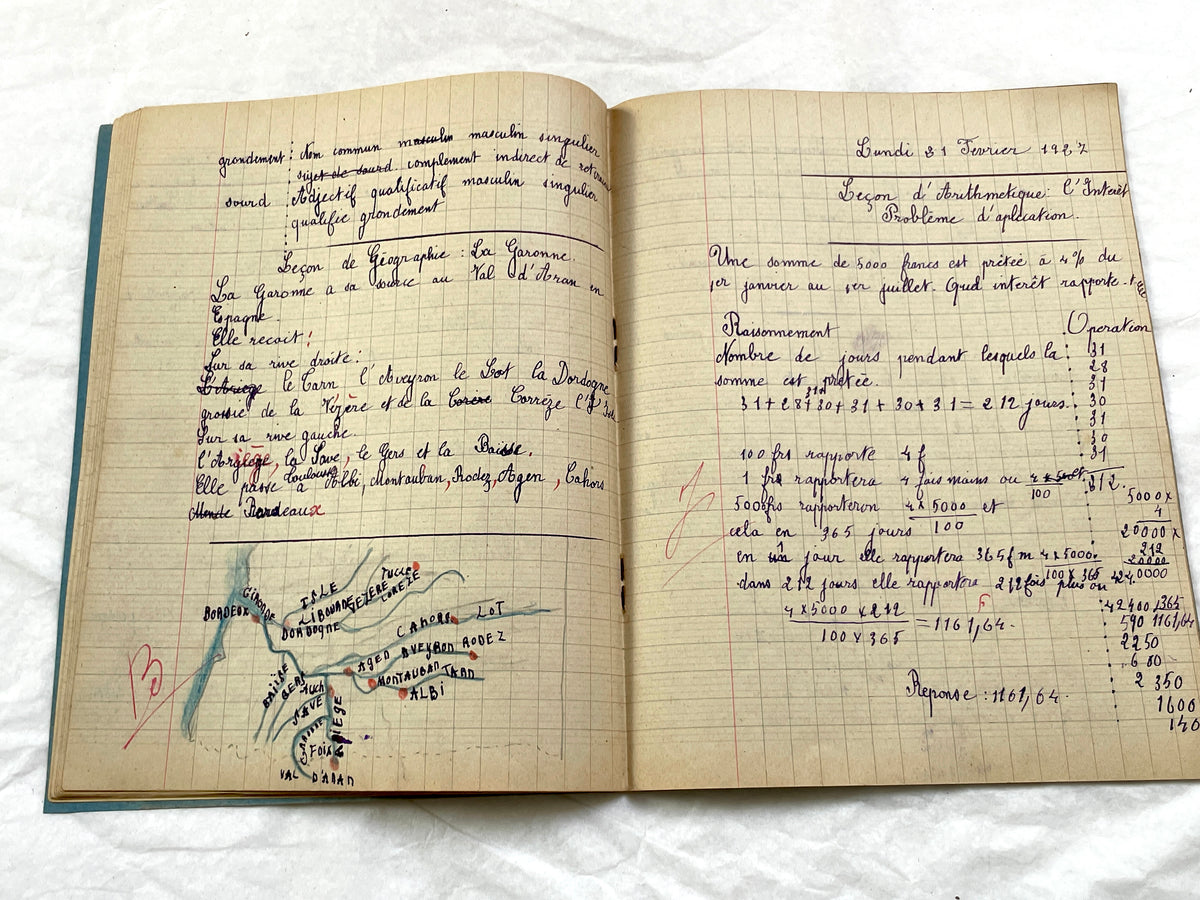 grondement : Nom commun masculin masculin singulier
sujet de sourd complement indirect de
sourd : Adjectif qualificatif masculin singulier
qualifie grondement
Leçon de Géographie : La Garonne.
La Garonne a sa source au Val d'Aran en
Espagne.
Elle recoit :
Sur sa rive droite :
L'Ariège le Tarn l'Aveyron le Lot la Dordogne
grossie de la Vézère et de la Corèze Corrèze l'Isle
Sur sa rive gauche.
l'Ariège, la Save, le Gers et la Baisse.
Toulouse
Elle passe à Albi, Montauban, Rodez, Agen, Cahors
Mende Bordeaux
B
GIRONDE
BORDEUX
ISLE
LIBOURNE
DORDOGNE
VEZERE
TULLE
COREZE
CAHORS
LOT
AGEN
AVEYRON
RODEZ
MONTAUBAN
TARN
ALBI
BAÏSE
GERS
AUCH
SAVE
GARONNE
ARIEGE
FOIX
VAL D'ARAN
Lundi 21 Février 1927
Leçon d'Arithmetique : l'Interêt
Problème d'aplication.
Une somme de 5000 francs est prêtée à 4% du
1er janvier au 1er juillet. Quel intérêt rapporte-t
Raisonnement
Nombre de jours pendant lesquels la
somme est prêtée.
31 + 28 + 31 + 30 + 31 + 30 + 31 = 212 jours.
100 frs rapporte 4 f
1 frs rapportera 4 fois mains ou 4 x 5000 / 100
5000 frs rapporteron 4 x 5000 / 100 et
cela en 365 jours
en un jour elle rapportera 365 f m 4 x 5000 / 100 x 365
dans 212 jours elle rapportera 212 fois plus ou
4 x 5000 x 212 / 100 x 365 = 1161,64. F
Reponse : 1161,64.
Operation
31
28
31
30
31
30
31
212.
5000 x
4
20000 x
212
20000
4240000
42400 365
590 1161,64
2250
600
2350
1600
140